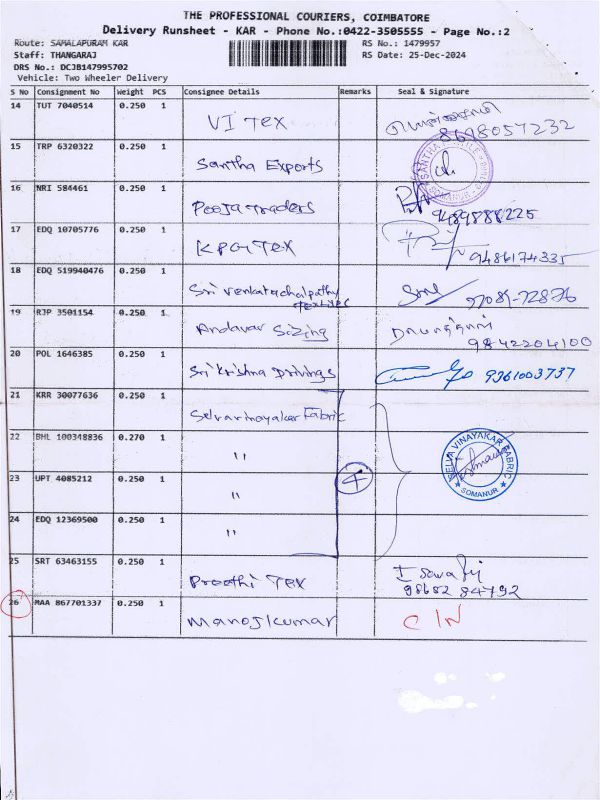 THE PROFESSIONAL COURIERS, COIMBATORE
Delivery Runsheet - KAR - Phone No.:0422-3505555 - Page No.:2
Route: SAMALAPURAM KAR RS No.: 1479957
Staff: THANGARAJ RS Date: 25-Dec-2024
DRS No.: DCJB147995702
Vehicle: Two Wheeler Delivery
S No Consignment No Weight PCS Consignee Details Remarks Seal & Signature
14 TUT 7040514 0.250 1 VI Tex
8698057232
15 TRP 6320322 0.250 1 Santha Exports
SOMANUR
16 NRI 584461 0.250 1 Pooja Traders
9489888225
17 EDQ 10705776 0.250 1 KPG Tex
9486174335
18 EDQ 519940476 0.250 1 Sri Venkatachalpathy
Textiles
97081-72876
19 RJP 3501154 0.250 1 Andavar Sizing
9842204100
20 POL 1646385 0.250 1 Sri Krishna Drivings 9361003737
21 KRR 30077636 0.250 1 Selvavinayakar Fabric
22 BHL 100348836 0.270 1 "
SELVA VINAYAKAR FABRIC
SOMANUR
23 UPT 4085212 0.250 1 " 4
24 EDQ 12369500 0.250 1 "
25 SRT 63463155 0.250 1 Preethi Tex
98652 84792
26 MAA 867701337 0.250 1 Manojkumar C/N